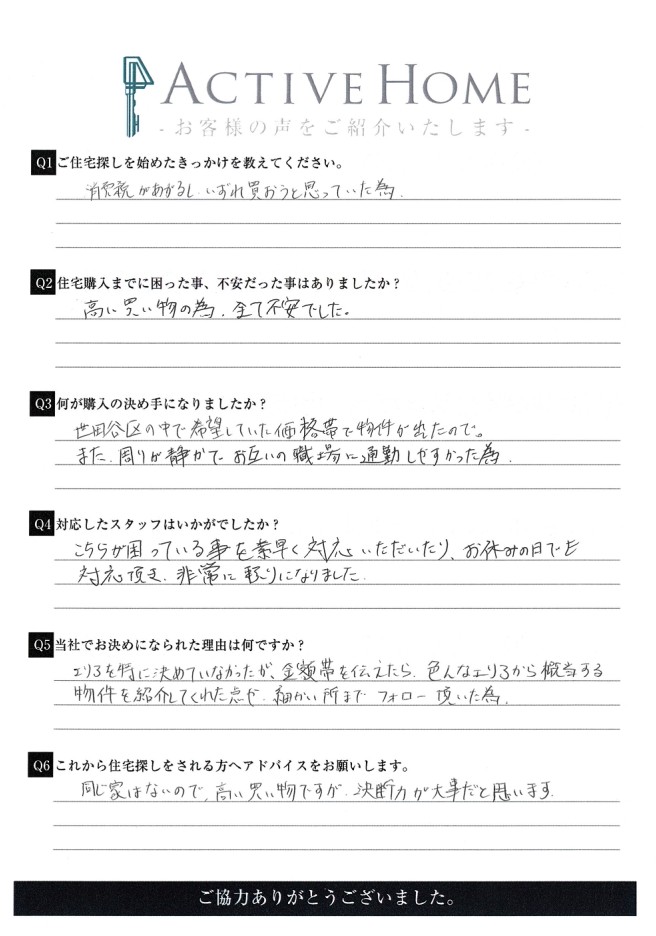 ACTIVE HOME
- お客様の声をご紹介いたします -
Q1 ご住宅探しを始めたきっかけを教えてください。
消費税があがるし、いずれ買おうと思っていた為.
Q2 住宅購入までに困った事、不安だった事はありましたか?
高い買い物の為、全て不安でした。
Q3 何が購入の決め手になりましたか?
世田谷区の中で希望していた価格帯で物件が出たので。
また、周りが静かで、お互いの職場に通勤しやすかった為.
Q4 対応したスタッフはいかがでしたか?
こちらが困っている事を素早く対応いただいたり、お休みの日でも
対応頂き、非常に頼りになりました.
Q5 当社でお決めになられた理由は何ですか?
エリアを特に決めていなかったが、金額帯を伝えたら、色んなエリアから概当する
物件を紹介してくれた点や、細かい所までフォロー頂いた為.
Q6 これから住宅探しをされる方へアドバイスをお願いします。
同じ家はないので、高い買い物ですが、決断力が大事だと思います.
ご協力ありがとうございました。